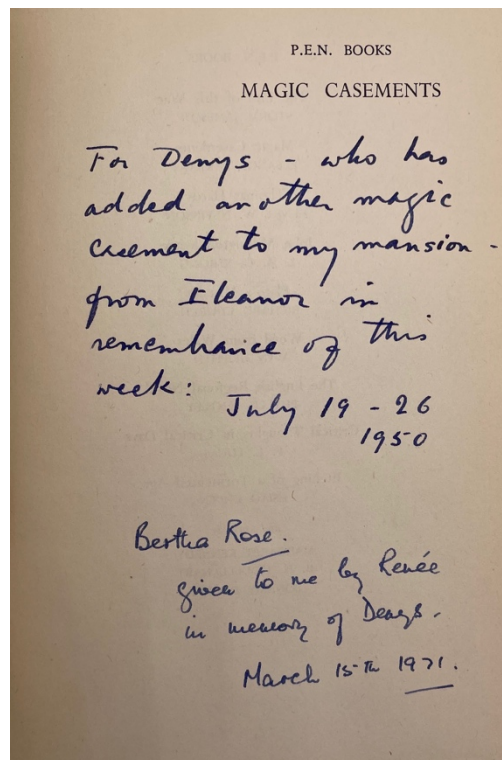 P.E.N. BOOKS
MAGIC CASEMENTS
For Denys - who has
added another magic
casement to my mansion -
from Eleanor in
remembrance of this
week:
July 19 - 26
1950
Bertha Rose.
given to me by Renée
in memory of Denys.
March 15th 1971.